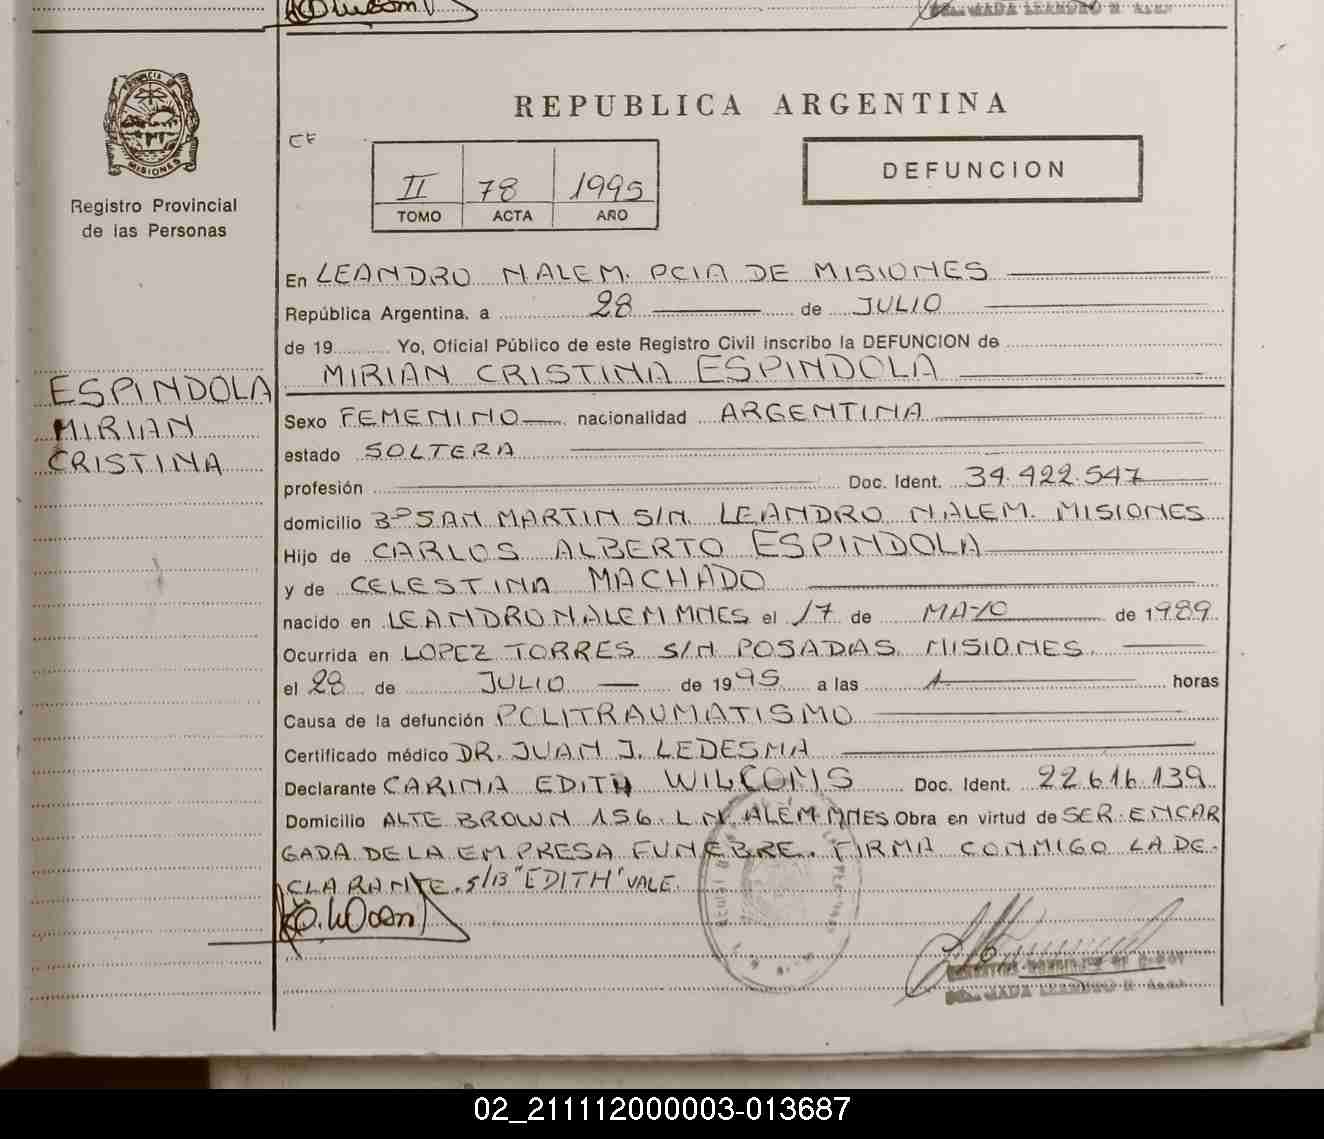 PROVINCIA DE
MISIONES
Registro Provincial
de las Personas
REPUBLICA ARGENTINA
CF
II 78 1995
TOMO ACTA AÑO
DEFUNCION
En LEANDRO N.ALEM. PCIA DE MISIONES
República Argentina, a 28 de JULIO
de 19 Yo, Oficial Público de este Registro Civil inscribo la DEFUNCION de
MIRIAN CRISTINA ESPINDOLA
ESPINDOLA
MIRIAN
CRISTINA
Sexo FEMENINO nacionalidad ARGENTINA
estado SOLTERA
profesión Doc. Ident. 34.422.547
domicilio Bº SAN MARTIN S/N. LEANDRO N.ALEM. MISIONES
Hijo de CARLOS ALBERTO ESPINDOLA
y de CELESTINA MACHADO
nacido en LEANDRO N.ALEM MNES el 17 de MAYO de 1989
Ocurrida en LOPEZ TORRES S/N POSADAS. MISIONES
el 28 de JULIO de 1995 a las 1 horas
Causa de la defunción POLITRAUMATISMO
Certificado médico DR. JUAN J. LEDESMA
Declarante CARINA EDITH WILCOMS Doc. Ident. 22.616.139
Domicilio ALTE BROWN 156. L.N. ALEM MNES Obra en virtud de SER ENCAR
GADA DE LA EMPRESA FUNEBRE. FIRMA CONMIGO LA DE-
CLARANTE. S/B "EDITH" VALE.
02_211112000003-013687